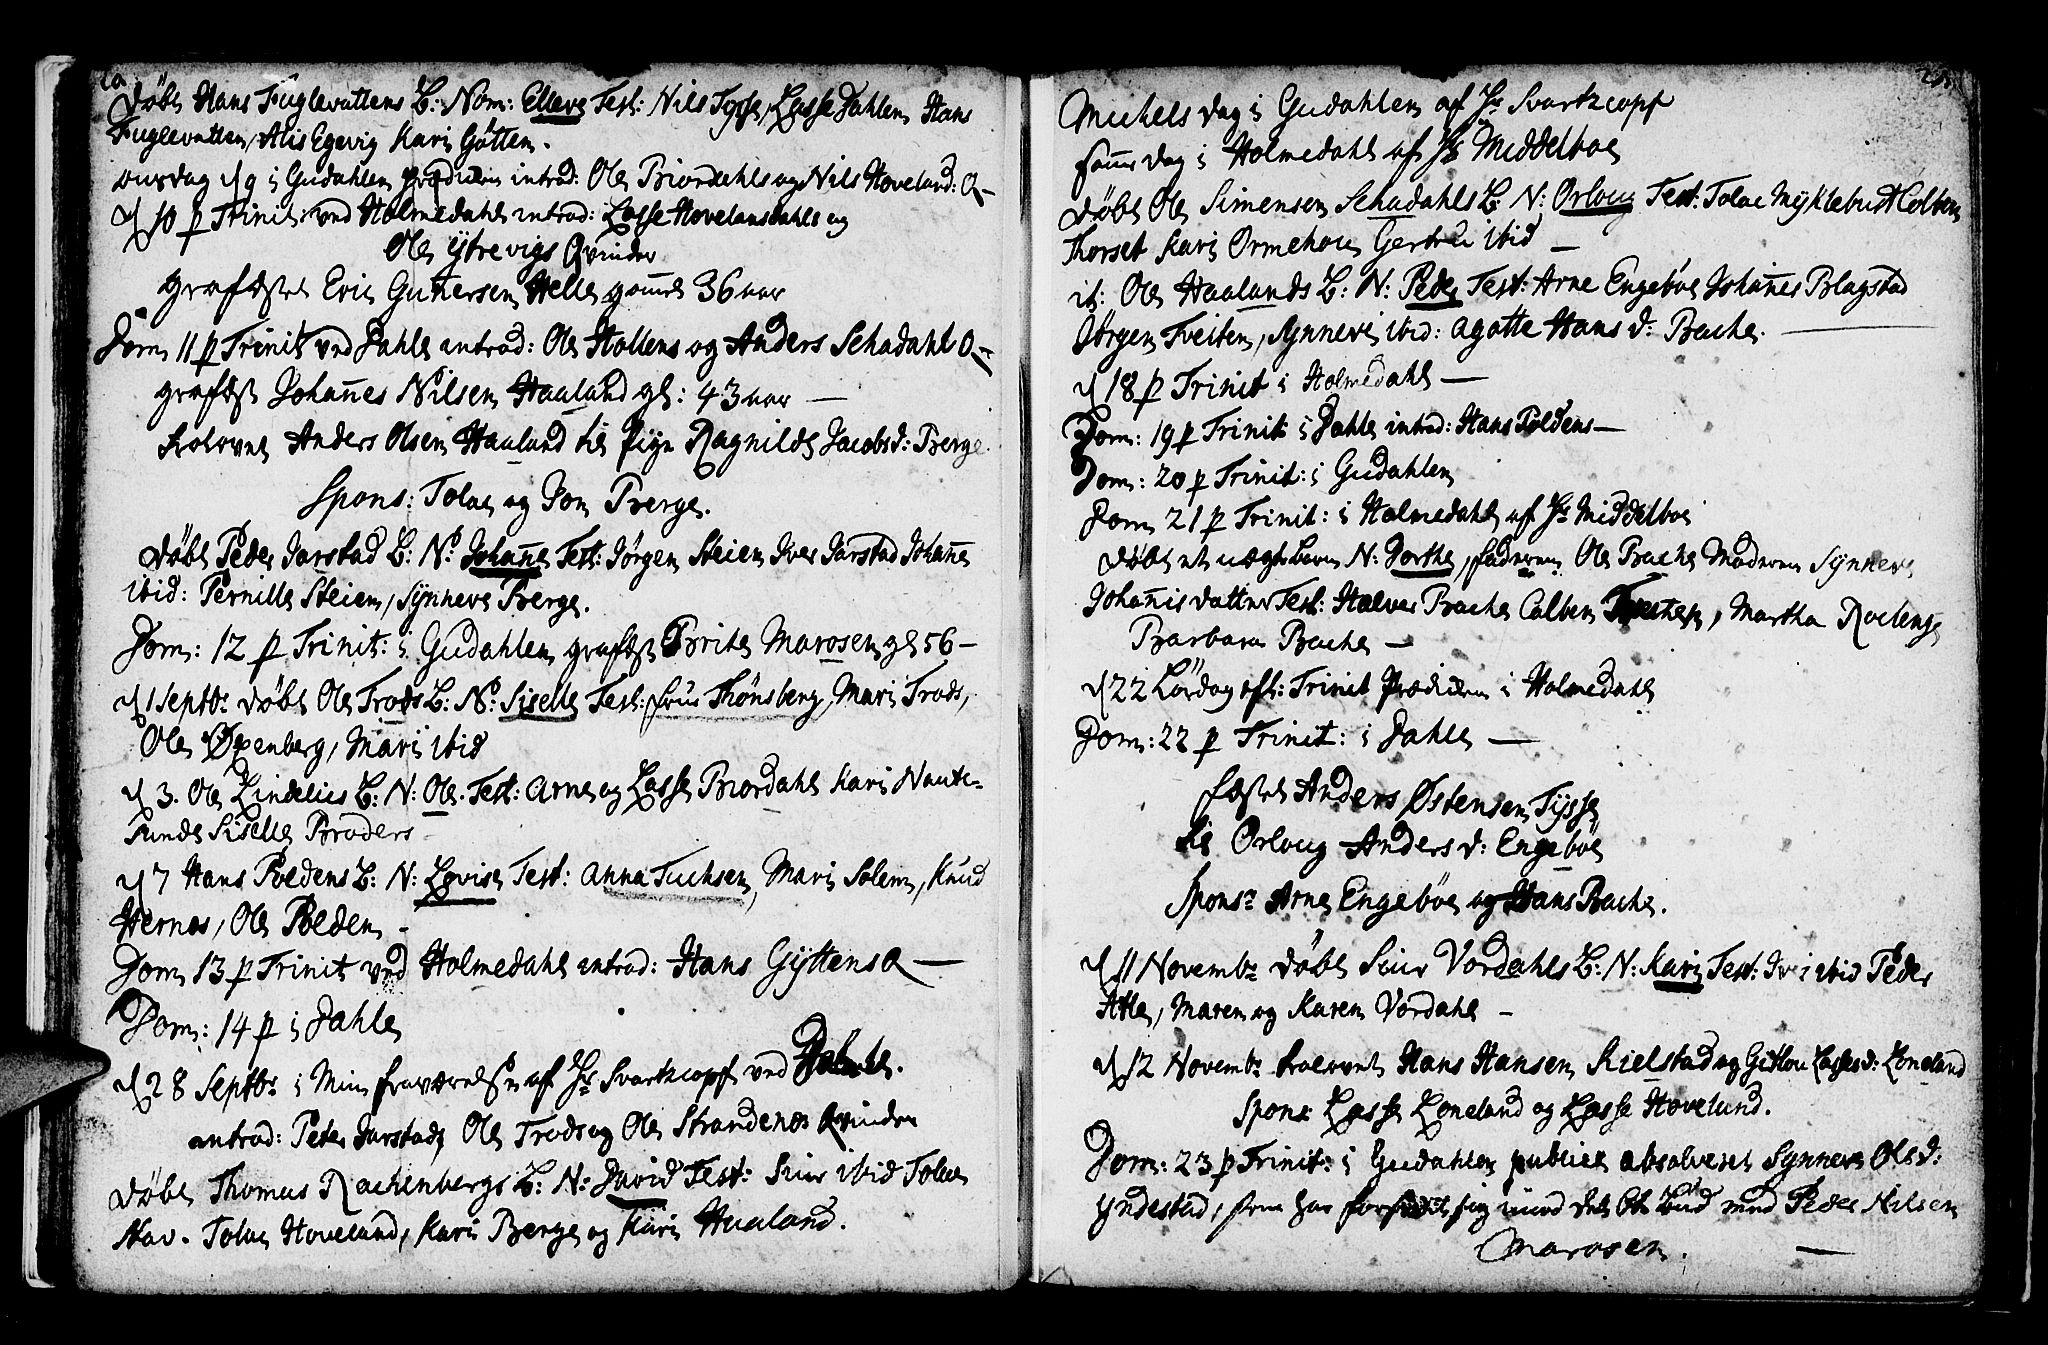 20
Döbt Hans Fuglevattens B: Nom: Ellevs Test: Nils Tysse, Lasse Dahlen Hans
Fuglevatten, Alis Egevig Kari Götten.
onsdag d 9 i Gudahlen prædiken introd: Ole Biordahls og Nils Hoveland: Q
d 10 p Trinit: ved Holmedahl introd: Lasse Hovelandsdahls og
Ole ytrevigs Qvinder
grafæstet Eric Gunersen Helle gaml 36 aar
Dom 11 p Trinit ved Dahle introd: Ole Hollens og Anders Schadahl Q
grafest Johañes Nilsen Haaland gl: 43 aar
trolovet Anders Olsen Haaland til Pige Ragnilde Jacobsd: Berge
Spons: Tolae og Jon Berge.
Döbt Peder Jarstad B: N: Johañe Test: Jörgen Steien Iver Jarstad Johañe
ibid: Pernille Steien, Synneve Berge.
Dom: 12 p Trinit: i Gudahlen grafest Brite Marosen gl 56
d 1 Septbr döbt Ole Trods B: N: Siselle Test: frue Thönsberg, Mari Trods,
Ole Oxenberg, Mari ibid
d 3. Ole Lindelies B: N: Ole. Test: Arne og Lasse Biordahl Kari Naute-
sunde Siselle Broders
d 7 Hans Poldens B: N: Lovise Test: Anna Fuchsen, Mari Solem, Knud
Hernes, Ole Polden
Dom 13 p Trinit ved Holmedahl introd: Hans Gyttens Q
Dom: 14 p i Dahle
d 28 Septbr i Min fraværelse af Hr Svartzcopf ved Dahle.
introd: Peter Jarstads, Ole Trods og Ole Strandenes Qvinder
Döbt Thomas Rachenbergs B: N: David Test: Siur ibid Tolae
Nav. Tolae Hoveland, Kari Berge og Kari Haaland.
21
Michels dag i Gudahlen af Hr Svartzcopf
samme dag i Holmedahl af Hr Middelboe
Döbt Ole Simensen Schadahls B: N: Orloug Test: Tolae Myklebust Colben
Thorset Kari Ormehou Gertru ibid
it: Ole Haalands B: N: Peder Test: Arne Engeböe Johañes Blagstad
Jörgen Tveiten, Synneve ibid: Agatte Hans d: Bache.
d 18 p Trinit i Holmedahl
Dom: 19 p Trinit: i Dahle introd: Hans Poldens
Dom: 20 p Trinit: i Gudahlen
Dom 21 p Trinit: i Holmedahl af Hr Middelboe
Döbt et uægte barn N: Dorthe, faderen Ole Bache Moderen Synneve
Johañis datter Test: Halver Bache Colben Tveiten, Martha Roelenge
Barbara Bache
d 22 Lördag eft: Trinit Prædiken i Holmedahl
Dom: 22 p Trinit: i Dahle
fæstet Anders Östensen Tysse
til Orloug Anders d: Engeböe
Spons: Arne Engeböe og Hans Bache.
d 11 Novembr döbt Siur Vordahls B: N: Kari Test: Iver ibid Peder
Atle, Maren og Karen Vordahl
d 12 Novembr trolovet Hans Hansen Kielstad og Gitlou Lasses d: Loneland
Spons: Lasse Loneland og Lasse Hoveland.
Dom: 23 p Trinit: i Gudahlen publice absolveret Synneve Ols d:
Yndestad, som har forseet sig imod det 6te bud med Peder Nilsen
Marosen.